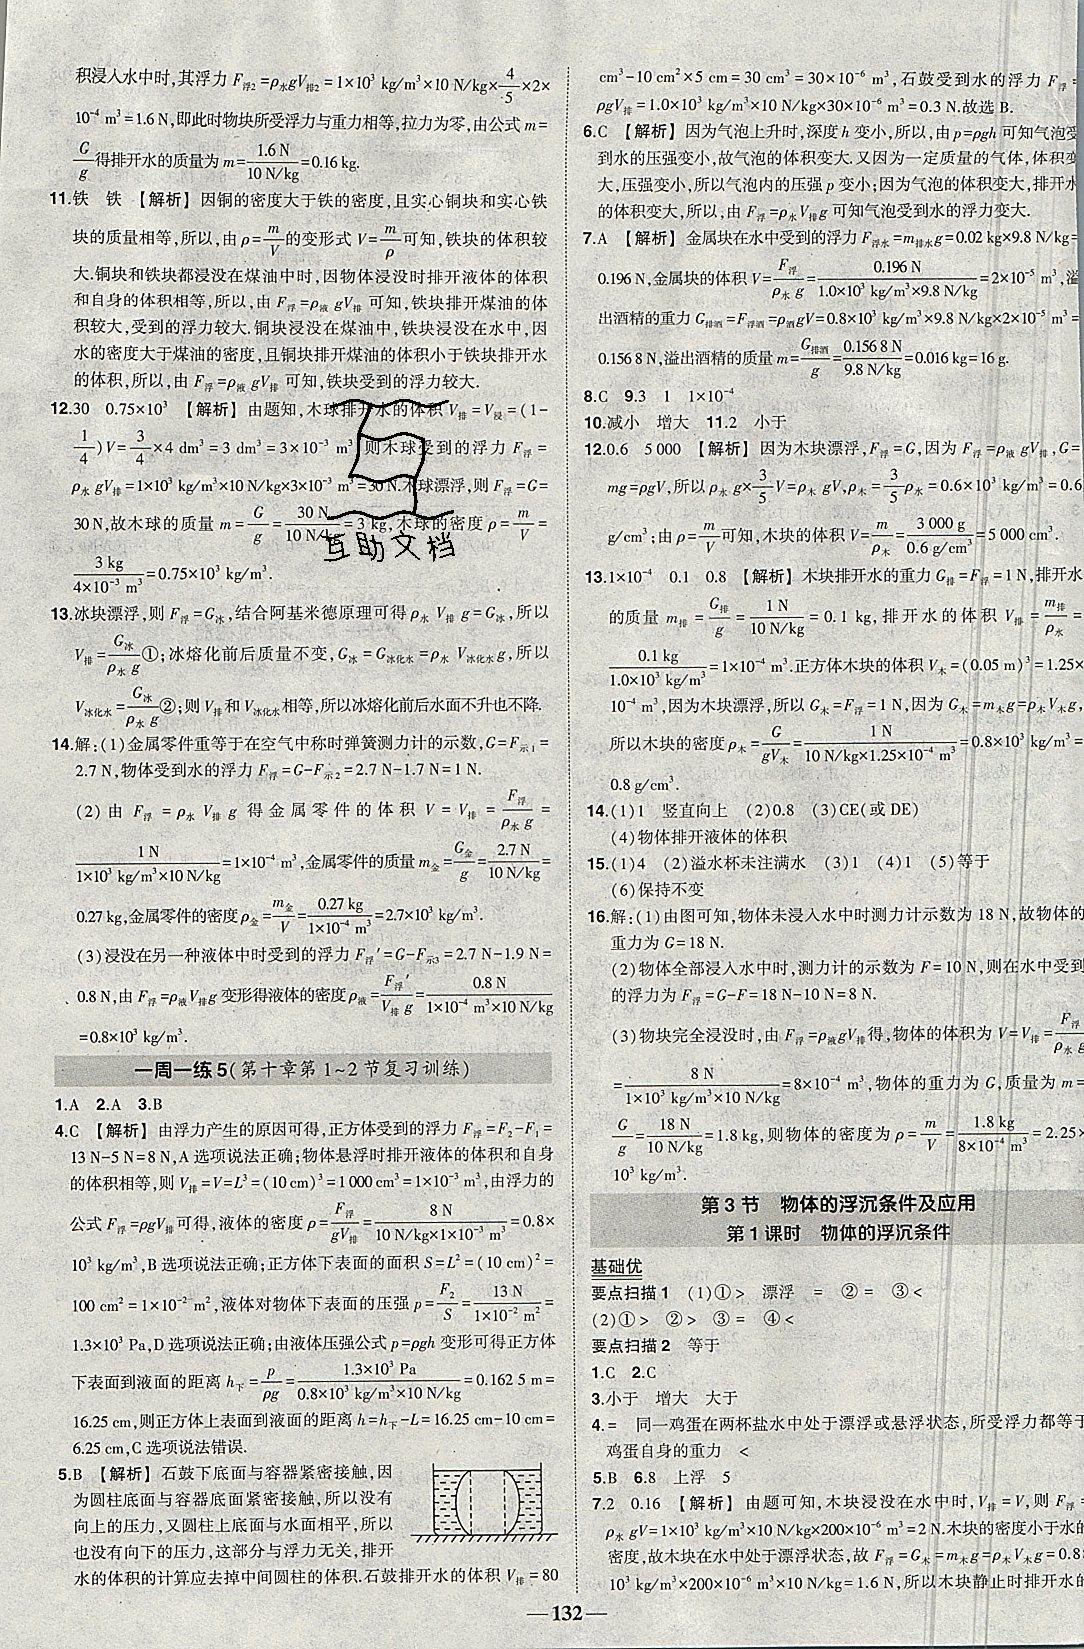 积浸入水中时,其浮力 F浮2=ρ水gV排2=1×10³ kg/m³×10 N/kg×4/5×2×
10⁻⁴ m³=1.6 N,即此时物块所受浮力与重力相等,拉力为零,由公式 m=
G/g得排开水的质量为 m=1.6 N/10 N/kg=0.16 kg.
11.铁 铁 【解析】 因铜的密度大于铁的密度,且实心铜块和实心铁
块的质量相等,所以,由ρ=m/V的变形式 V=m/ρ可知,铁块的体积较
大.铜块和铁块都浸没在煤油中时,因物体浸没时排开液体的体积
和自身的体积相等,所以,由 F浮=ρ液 gV排 可知,铁块排开煤油的体
积较大,受到的浮力较大.铜块浸没在煤油中,铁块浸没在水中,因
水的密度大于煤油的密度,且铜块排开煤油的体积小于铁块排开水
的体积,所以,由 F浮=ρ液 gV排 可知,铁块受到的浮力较大.
12.30 0.75×10³ 【解析】 由题知,木球排开水的体积 V排=V浸=(1-
1/4)V=3/4×4 dm³=3 dm³=3×10⁻³ m³,则木球受到的浮力 F浮=
ρ水 gV排=1×10³ kg/m³×10 N/kg×3×10⁻³ m³=30 N.木球漂浮,则 F浮=G=
30 N,故木球的质量 m=G/g=30 N/10 N/kg=3 kg,木球的密度 ρ=m/V=
3 kg/4×10⁻³ m³=0.75×10³ kg/m³.
互助文档
13.冰块漂浮,则 F浮=G冰,结合阿基米德原理可得 ρ水 V排 g=G冰,所以
V排=G冰/ρ水 g①;冰熔化前后质量不变,G冰=G冰化水=ρ水 V冰化水g,所以
V冰化水=G冰/ρ水 g②;则 V排和 V冰化水相等,所以冰熔化前后水面不升也不降.
14.解:(1)金属零件重等于在空气中称时弹簧测力计的示数,G=F示1=
2.7 N,物体受到水的浮力 F浮=G-F示2=2.7 N-1.7 N=1 N.
(2)由 F浮=ρ水 V排 g 得金属零件的体积 V=V排=F浮/ρ水 g=
1 N/1×10³ kg/m³×10 N/kg=1×10⁻⁴ m³,金属零件的质量 m金=G金/g=2.7 N/10 N/kg=
0.27 kg,金属零件的密度 ρ金=m金/V=0.27 kg/1×10⁻⁴ m³=2.7×10³ kg/m³.
(3)浸没在另一种液体中时受到的浮力 F浮′=G-F示3=2.7 N-1.9 N=
0.8 N,由 F浮=ρ液V排g 变形得液体的密度 ρ液=F浮′/V排 g=0.8 N/1×10⁻⁴ m³×10 N/kg
=0.8×10³ kg/m³.
一周一练 5(第十章第 1~2 节复习训练)
1.A 2.A 3.B
4.C 【解析】 由浮力产生的原因可得,正方体受到的浮力 F浮=F2-F1=
13 N-5 N=8 N,A 选项说法正确;物体悬浮时排开液体的体积和自身
的体积相等,则 V排=V=L³=(10 cm)³=1 000 cm³=1×10⁻³ m³,由浮力的
公式 F浮=ρgV排可得,液体的密度 ρ=F浮/gV排=8 N/10 N/kg×1×10⁻³ m³=0.8×
10³ kg/m³,B 选项说法正确;正方体下表面的面积 S=L²=(10 cm)²=
100 cm²=1×10⁻² m²,液体对物体下表面的压强 p=F2/S=13 N/1×10⁻² m²=
1.3×10³ Pa,D 选项说法正确;由液体压强公式 p=ρgh 变形可得正方体
下表面到液面的距离 h下=p/ρg=1.3×10³ Pa/0.8×10³ kg/m³×10 N/kg=0.162 5 m=
16.25 cm,则正方体上表面到液面的距离 h=h下-L=16.25 cm-10 cm=
6.25 cm,C 选项说法错误.
5.B 【解析】 石鼓下底面与容器紧密接触,因
为圆柱底面与容器底面紧密接触,所以没有
向上的压力,又圆柱上底面与水面相平,所以
也没有向下的压力,这部分与浮力无关,排开
水的体积的计算应去掉中间圆柱的体积.石鼓排开水的体积 V排=80
cm³-10 cm²×5 cm=30 cm³=30×10⁻⁶ m³,石鼓受到水的浮力 F浮=
ρgV排=1.0×10³ kg/m³×10 N/kg×30×10⁻⁶ m³=0.3 N.故选 B.
6.C 【解析】 因为气泡上升时,深度 h 变小,所以,由 p=ρgh 可知气泡受
到水的压强变小,故气泡的体积变大.又因为一定质量的气体,体积变
大,压强变小,所以气泡内的压强 p 变小;因为气泡的体积变大,排开水
的体积变大,所以,由 F浮=ρ水 V排g 可知气泡受到水的浮力变大.
7.A 【解析】 金属块在水中受到的浮力 F浮水=m排水g=0.02 kg×9.8 N/kg=
0.196 N,金属块的体积 V=F浮/ρ水 g=0.196 N/1.0×10³ kg/m³×9.8 N/kg=2×10⁻⁵ m³,溢
出酒精的重力 G排酒=F浮酒=ρ酒gV=0.8×10³ kg/m³×9.8 N/kg×2×10⁻⁵ m³=
0.156 8 N,溢出酒精的质量 m=G排酒/g=0.156 8 N/9.8 N/kg=0.016 kg=16 g.
8.C 9.3 1 1×10⁻⁴
10.减小 增大 11.2 小于
12.0.6 5 000 【解析】 因为木块漂浮,F浮=G,因为 F浮=ρ液 gV排,G=
mg=ρgV,所以 ρ水 g×3/5V=ρ木 gV,ρ木=3/5ρ水=0.6×10³ kg/m³=0.6
g/cm³;由 ρ=m/V可知,木块的体积 V=m/ρ木=3 000 g/0.6 g/cm³=5 000 cm³.
13.1×10⁻⁴ 0.1 0.8 【解析】 木块排开水的重力 G排=F浮=1 N,排开水
的质量 m排=G排/g=1 N/10 N/kg=0.1 kg,排开水的体积 V排=m排/ρ水=
0.1 kg/1.0×10³ kg/m³=1×10⁻⁴ m³.正方体木块的体积 V木=(0.05 m)³=1.25×
10⁻⁴ m³,因为木块漂浮,所以 G木=F浮=1 N,因为 G木=m木g=ρ木V木g,
所以木块的密度 ρ木=G/gV木=1 N/10 N/kg×1.25×10⁻⁴ m³=0.8×10³ kg/m³=
0.8 g/cm³.
14.(1)1 竖直向上 (2)0.8 (3)CE(或 DE)
(4)物体排开液体的体积
15.(1)4 (2)溢水杯未注满水 (3)1 (4)1 (5)等于
(6)保持不变
16.解:(1)由图可知,物体未浸入水中时测力计示数为 18 N,故物体的
重力为 G=18 N.
(2)物体全部浸入水中时,测力计的示数为 F=10 N,则在水中受到
的浮力为 F浮=G-F=18 N-10 N=8 N.
(3)物块完全浸没时,由 F浮=ρ液gV排得,物体的体积为 V=V排=F浮/ρ水g
=8 N/1×10³ kg/m³×10 N/kg=8×10⁻⁴ m³,物体的重力为 G,质量为 m=
G/g=18 N/10 N/kg=1.8 kg,则物体的密度为 ρ=m/V=1.8 kg/8×10⁻⁴ m³=2.25×
10³ kg/m³.
第 3 节 物体的浮沉条件及应用
第 1 课时 物体的浮沉条件
基础优
要点扫描 1 (1)①> 漂浮 = ②= ③<
(2)①> ②> ③= ④<
要点扫描 2 等于
1.C 2.C
3.小于 增大 大于
4.= 同一鸡蛋在两杯盐水中处于漂浮或悬浮状态,所受浮力都等于
鸡蛋自身的重力 <
5.B 6.8 上浮 5
7.2 0.16 【解析】 由题可知,木块浸没在水中时,V排=V,则 F浮=
ρ水 gV=1×10³ kg/m³×10 N/kg×200×10⁻⁶ m³=2 N.木块的密度小于水的
密度,故木块在水中处于漂浮状态,故 F浮=G木=m木g=ρ木 V木g=0.8×
10³ kg/m³×200×10⁻⁶ m³×10 N/kg=1.6 N,所以木块静止时排开水的
132